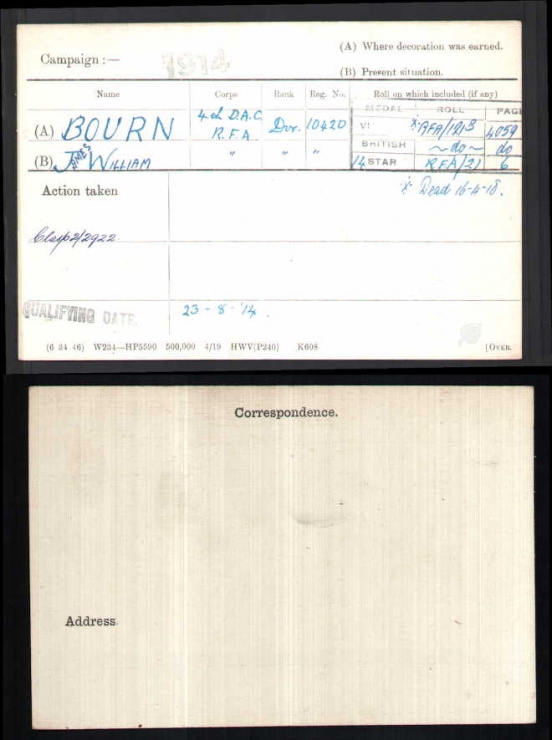 (A) Where decoration was earned.
Campaign :— 1914
(B) Present situation.
Name Corps Rank Reg. No. Roll on which included (if any)
MEDAL ROLL PAGE
(A) BOURN 4th D.A.C. Dvr. 10420
R.F.A.
VI * RFA/191B 4059
BRITISH ~ do ~ do
(B) JAMES WILLIAM " " "
14 STAR RFA/21 6
Action taken * Dead 16-4-18.
Clasp 2/2922
QUALIFYING DATE. 23 - 8 - '14.
(6 34 46) W234—HP5590 500,000 4/19 HWV(P240) K608 [OVER.
Correspondence.
Address